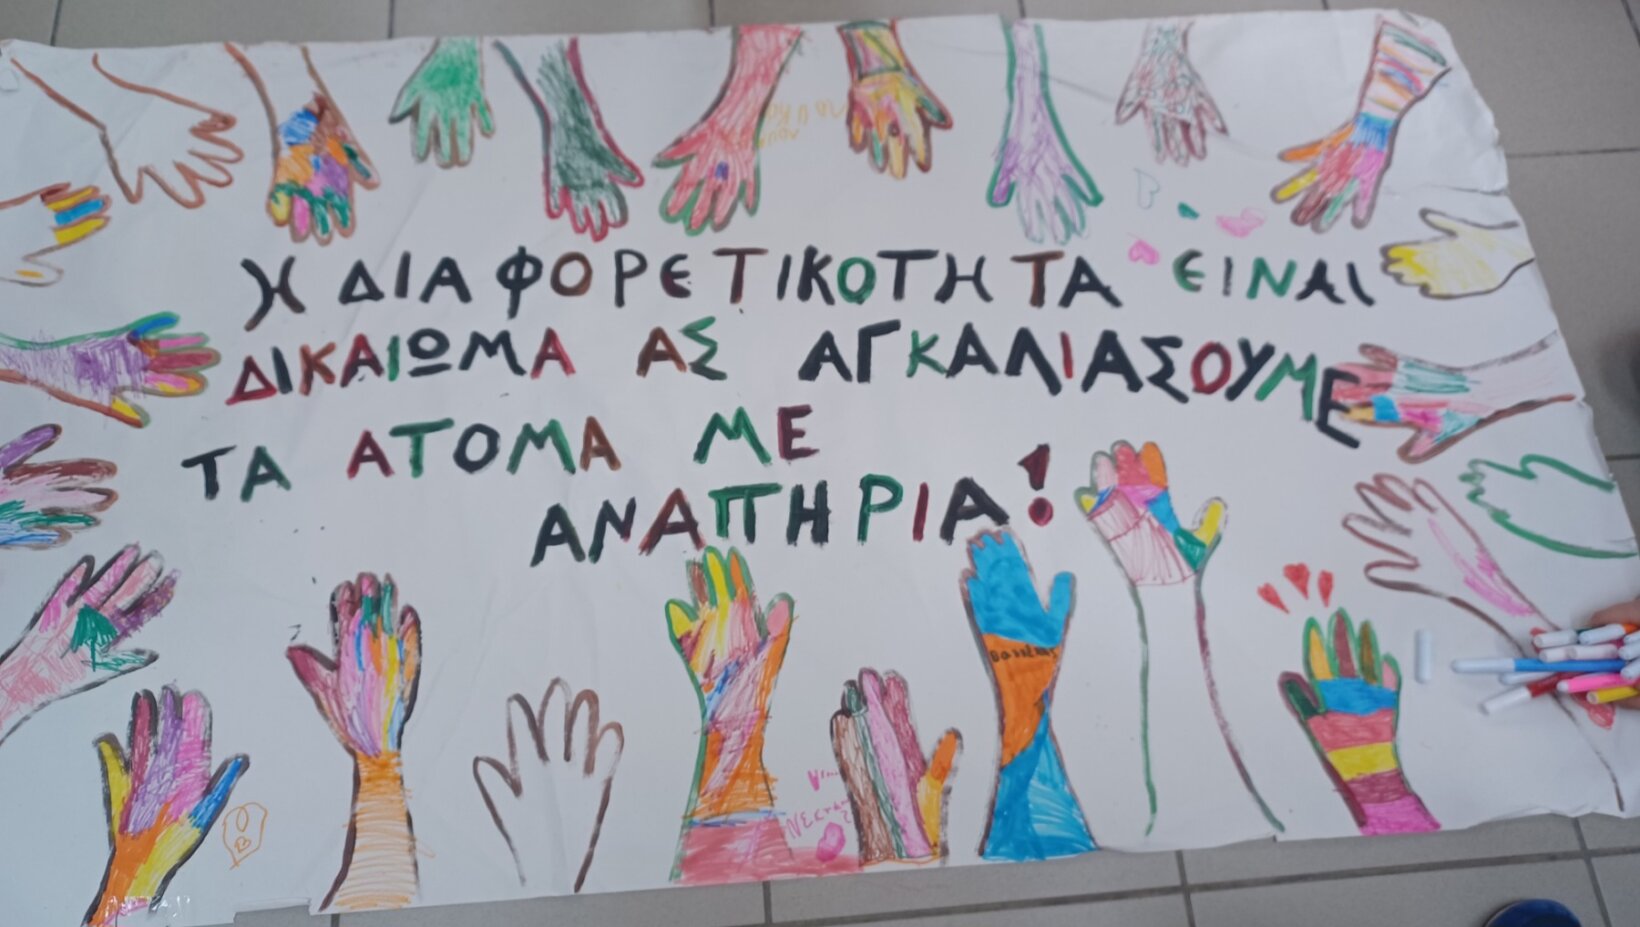 Η ΔΙΑΦΟΡΕΤΙΚΟΤΗΤΑ ΕΙΝΑΙ
ΔΙΚΑΙΩΜΑ ΑΣ ΑΓΚΑΛΙΑΣΟΥΜΕ
ΤΑ ΑΤΟΜΑ ΜΕ
ΑΝΑΠΗΡΙΑ!